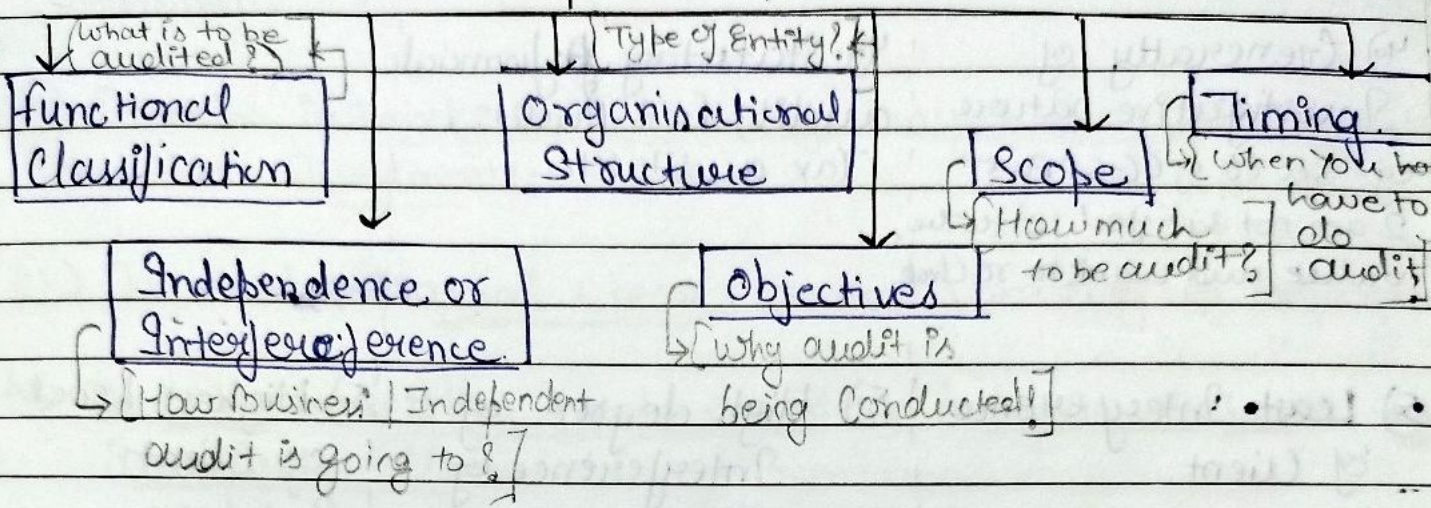 [What is to be
audited?]
functional
Classification
[Type of Entity?]
Organisational
Structure
Scope
[How much
to be audit?]
Timing.
[When You ho
have to
do
audit]
Independence or
Interference.
[How Business / Independent
audit is going to ?]
Objectives
[Why audit is
being Conducted!]